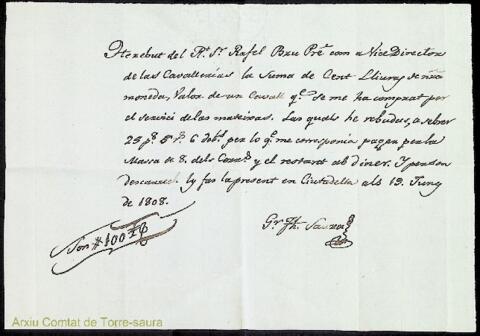 He rebut del R.t S.r Rafel Bru Pre. com a Vice Director
de las Cavallerias la Suma de Cent Lliuras de nra
moneda, Valor de un Cavall q.e se me ha comprat per
el servici de las mateixas. Las quals he rebudas, a sebrer
25 p.s 5 6 dob.s per lo q.e me corresponia pagar per la
Massa de 8. dels y el restant ab diner. Y per son
descarrech ly fas la present en Ciutadella als 19. Juny
de 1808.
Son # 100 ₶
Arxiu Comtat de Torre-saura